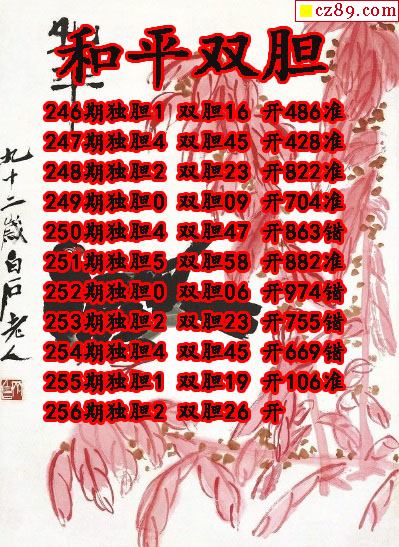 cz89.com
和平双胆
246期独胆1 双胆16 开486准
247期独胆4 双胆45 开428准
248期独胆2 双胆23 开822准
249期独胆0 双胆09 开704准
250期独胆4 双胆47 开863错
251期独胆5 双胆58 开882准
252期独胆0 双胆06 开974错
253期独胆2 双胆23 开755错
254期独胆4 双胆45 开669错
255期独胆1 双胆19 开106准
256期独胆2 双胆26 开
九十二岁白石老人